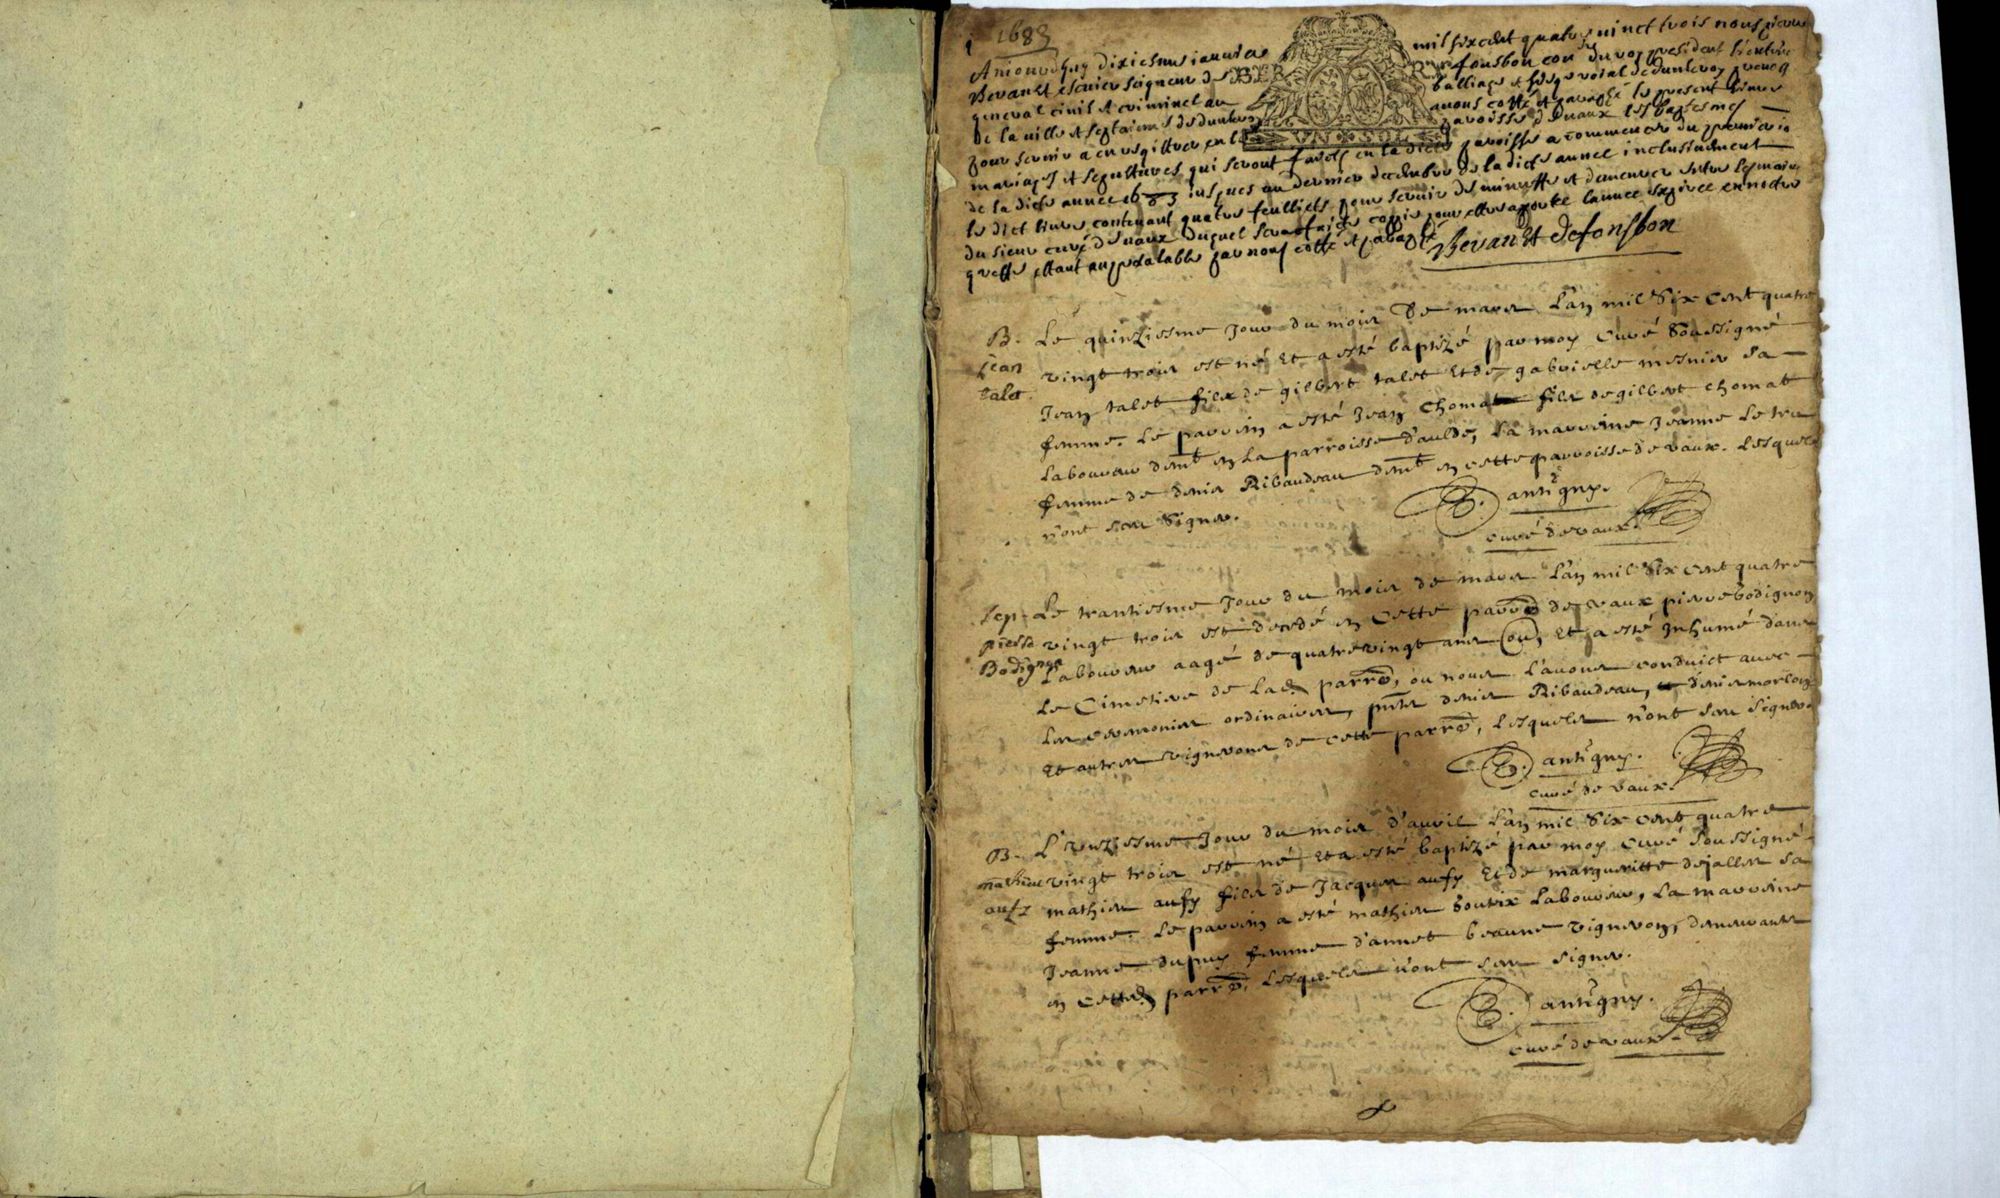 1 1683
Aujourdhuy dixiesme januier mil six cent quatre vinct trois nous pierre
Beraud escuier seigneur de fonsbon con.er du roy president lieutenant
general ciuil et criminel au balliage et siege roial de
de la ville et septaines de auons cotté et paraphé le present liure
pour seruir a enregistrer en la parroisse de vaux les baptesmes
mariages et sepultures qui seront faicts en la dicte parroisse a commencer du premier
de la dicte annee 1683 jusques au dernier decembre de la dicte annee inclusiuement
le dict liure contenant quatre feulliets pour seruir de minutte et demeurer entre les mains
du sieur curé de vaux duquel sera faicte coppie pour estre aportee lannee expiree en nostre
greffe estant au prealable par nous cotté et paraphé
BER RY
VN SOL
B. Le quinziesme Jour du mois De mars L'an mil Six Cent quatre
Jean vingt trois est né Et a esté baptizé par moy Curé Soussigné
talet Jean talet fils de gilbert talet Et de gabrielle mesnier sa
femme. Le parrein a esté Jean Chomat fils de gilbert Chomat
Laboureur demt en La parroisse d'aulde, La marreine Jeanne Le
femme de denis Ribaudeau demt en cette parroisse de vaux. Lesquels
n'ont sceu Signer.
antigny.
curé de vaux.
Sep. Le trantiesme Jour du mois de mars L'an mil Six cent quatre
pierre vingt trois est decedé en Cette parre de vaux pierre bodignon
Bodignon Laboureur aagé de quatre vingt ans ou, Et a esté Inhumé dans
Le Cimetiere de Lad. parre, ou nous L'auons conduict auec
Les ceremonies ordinaires, pnts denis Ribaudeau, denis
Et autres vignerons de cette parre, Lesquels n'ont sceu signer.
antigny.
curé de vaux.
B. L'onziesme Jour du mois d'auril L'an mil Six cent quatre
vingt trois est né Et a esté baptizé par moy Curé Soussigné
aufy mathieu aufy fils de Jacques aufy Et de margueritte dejaller sa
femme. Le parrein a esté mathieu Laboureur, La marreine
Jeanne dupuy femme d'annet beaune vigneron, demeurants
en Cette parre, Lesquels n'ont sceu signer.
antigny.
curé de vaux.